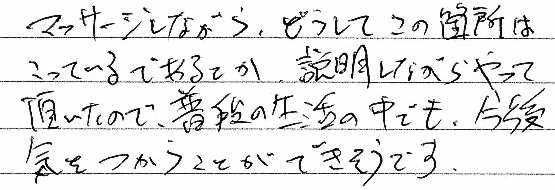 マッサージしながら、どうしてこの箇所は
こっているであるとか、説明しながらやって
頂いたので、普段の生活の中でも、今後
気をつかうことができそうです。